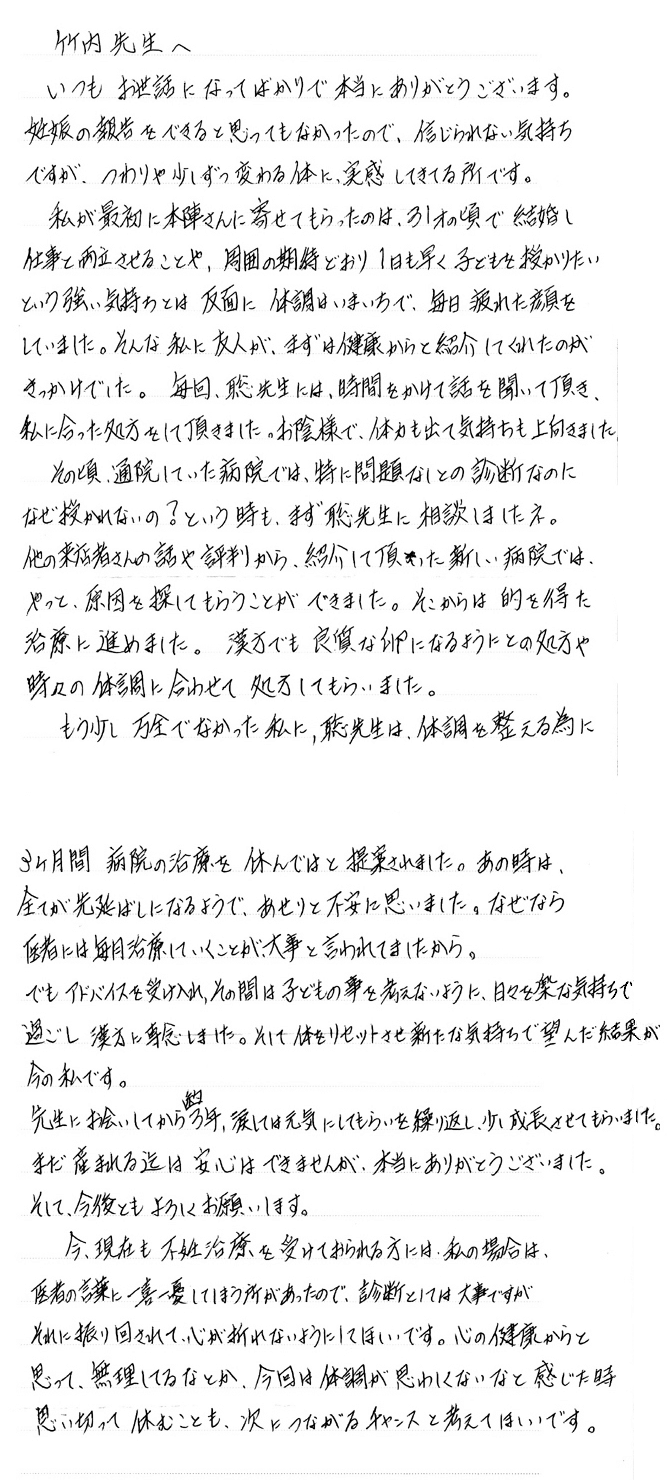 竹内先生へ
いつもお世話になってばかりで本当にありがとうございます。
妊娠の報告をできると思ってもなかったので、信じられない気持ち
ですが、つわりや少しずつ変わる体に、実感してきてる所です。
私が最初に本陣さんに寄せてもらったのは、31才の頃で結婚し
仕事と両立させることや、周囲の期待どおり1日も早く子どもを授かりたい
という強い気持ちとは反面に体調はいまいちで、毎日疲れた顔を
していました。そんな私に友人が、まずは健康からと紹介してくれたのが
きっかけでした。毎回、聡先生には、時間をかけて話を聞いて頂き、
私に合った処方をして頂きました。お陰様で、体力も出て気持ちも上向きました
その頃、通院していた病院では、特に問題なしとの診断なのに
なぜ授かれないの?という時も、まず聡先生に相談しましたネ。
他の来店者さんの話や評判から、紹介して頂いた新しい病院では、
やっと、原因を探してもらうことができました。そこからは的を得た
治療に進めました。漢方でも良質な卵になるようにとの処方や
時々の体調に合わせて処方してもらいました。
もう少し万全でなかった私に,聡先生は、体調を整える為に
3ヶ月間病院の治療を休んではと提案されました。あの時は、
全てが先延ばしになるようで、あせりと不安に思いました。なぜなら
医者には毎月治療していくことが、大事と言われてましたから。
でもアドバイスを受け入れ,その間は子どもの事を考えないように、日々を楽な気持ちで
過ごし漢方に専念しました。そして体をリセットさせ新たな気持ちで望んだ結果が
今の私です。
先生にお会いしてから約3年,涙しては元気にしてもらいを繰り返し、少し成長させてもらいました。
まだ産まれる迄は安心はできませんが、本当にありがとうございました。
そして、今後ともよろしくお願いします。
今、現在も不妊治療を受けておられる方には、私の場合は、
医者の言葉に一喜一憂してしまう所があったので、診断としては大事ですが
それに振り回されて、心が折れないようにしてほしいです。心の健康からと
思って、無理してるなとか、今回は体調が思わしくないなと感じた時
思い切って休むことも、次につながるチャンスと考えてほしいです。